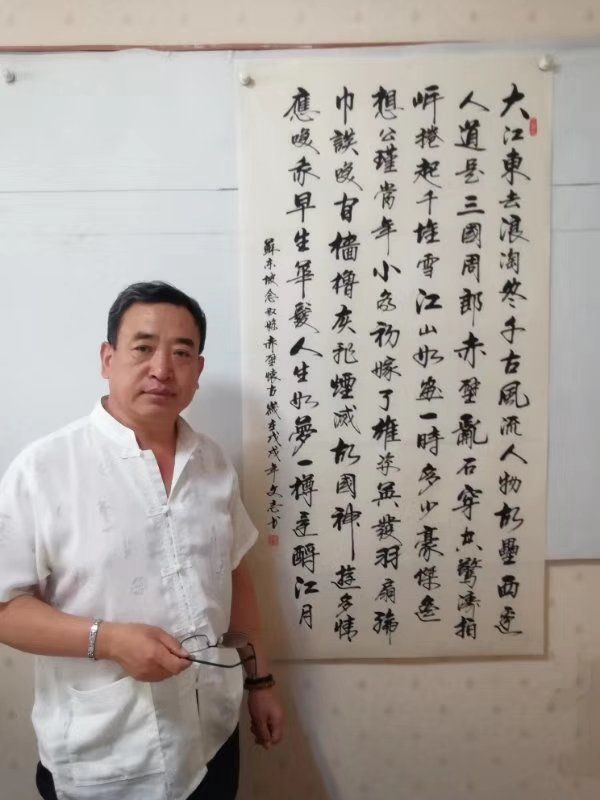 大江東去浪淘尽千古風流人物故壘西邊
人道是三國周郎赤壁亂石穿空驚濤拍
岸捲起千堆雪江山如畫一時多少豪傑遙
想公瑾當年小喬初嫁了雄姿英發羽扇綸
巾談咲間檣櫓灰飛煙滅故國神遊多情
應咲我早生華髮人生如夢一樽還酹江月
蘇東坡念奴嬌赤壁懷古歲在戊戌年文志书